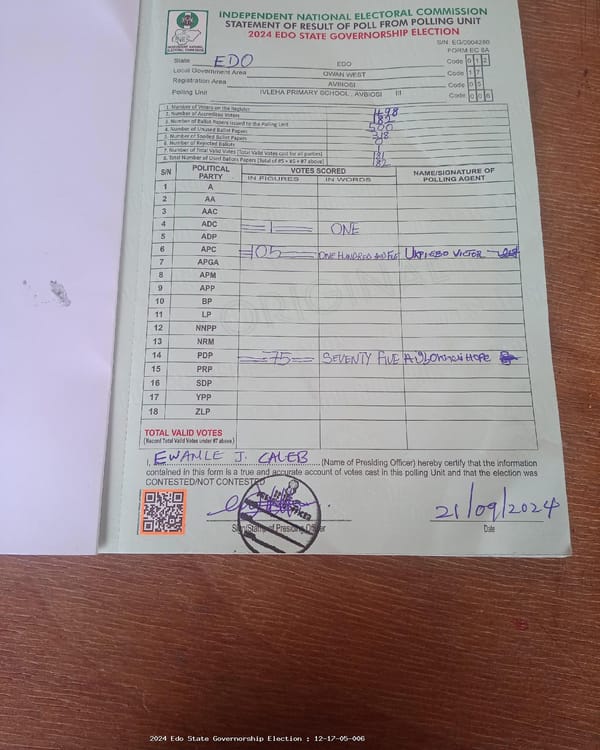 INDEPENDENT NATIONAL ELECTORAL COMMISSION
STATEMENT OF RESULT OF POLL FROM POLLING UNIT
2024 EDO STATE GOVERNORSHIP ELECTION
S/N: EG/0004280
FORM EC 8A
State EDO EDO Code 0 1 2
Local Government Area OVIAN WEST Code 1 7
Registration Area AVBIOSI Code 0 5
Polling Unit IVLEHA PRIMARY SCHOOL , AVBIOSI III Code 0 0 6
1. Number of Voters on the Register 1498
2. Number of Accredited Voters 182
3. Number of Ballot Papers Issued to the Polling Unit 500
4. Number of Unused Ballot Papers 318
5. Number of Spoiled Ballot Papers 0
6. Number of Rejected Ballots 1
7. Number of Total Valid Votes (Total Valid Votes cast for all parties) 181
8. Total Number of Used Ballots Papers (Total of #5 + #6 + #7 above) 182
S/N POLITICAL PARTY VOTES SCORED NAME/SIGNATURE OF POLLING AGENT
IN FIGURES IN WORDS
1 A
2 AA
3 AAC
4 ADC 1 ONE
5 ADP
6 APC 105 ONE HUNDRED AND FIVE UKPIEBO VICTOR
7 APGA
8 APM
9 APP
10 BP
11 LP
12 NNPP
13 NRM
14 PDP 75 SEVENTY FIVE HOPE
15 PRP
16 SDP
17 YPP
18 ZLP
TOTAL VALID VOTES
(Record Total Valid Votes under #7 above)
I, EWANLE J. CALEB (Name of Presiding Officer) hereby certify that the information
contained in this form is a true and accurate account of votes cast in this polling Unit and that the election was
CONTESTED/NOT CONTESTED
Sign/Stamp of Presiding Officer
21/09/2024
Date
2024 Edo State Governorship Election : 12-17-05-006